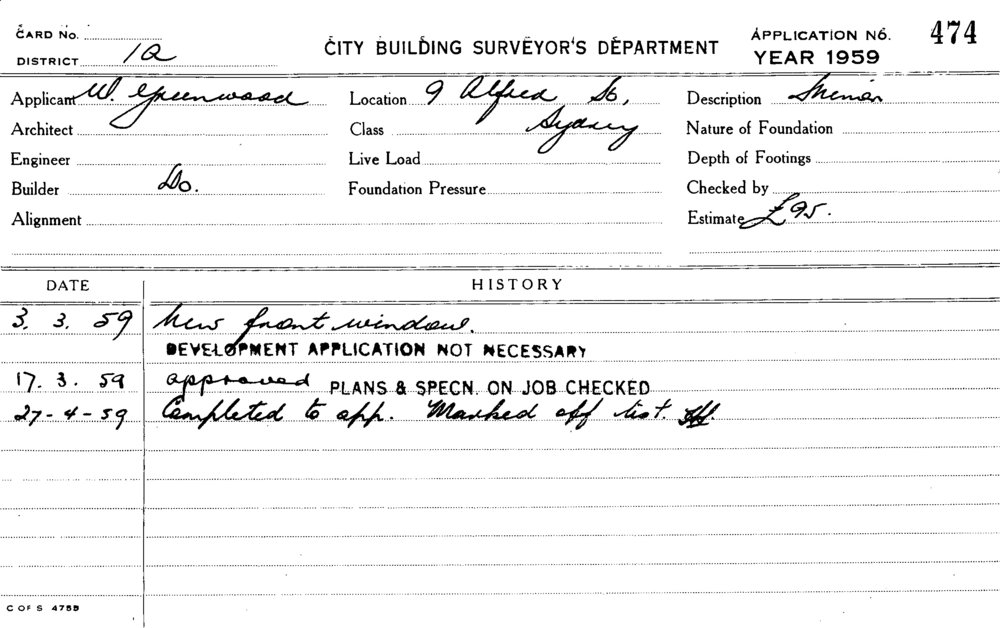 CARD No.
DISTRICT 1Q
CITY BUILDING SURVEYOR'S DEPARTMENT
APPLICATION No. 474
YEAR 1959
Applicant W. Greenwood
Location 9 Alfred St,
Description
Architect
Class Sydney
Nature of Foundation
Engineer
Live Load
Depth of Footings
Builder Do.
Foundation Pressure
Checked by
Alignment
Estimate £95.
DATE HISTORY
3. 3. 59 New front window.
DEVELOPMENT APPLICATION NOT NECESSARY
17. 3. 59 approved PLANS & SPECN. ON JOB CHECKED
27-4-59 Completed to app. Marked off list.
C OF S 4755